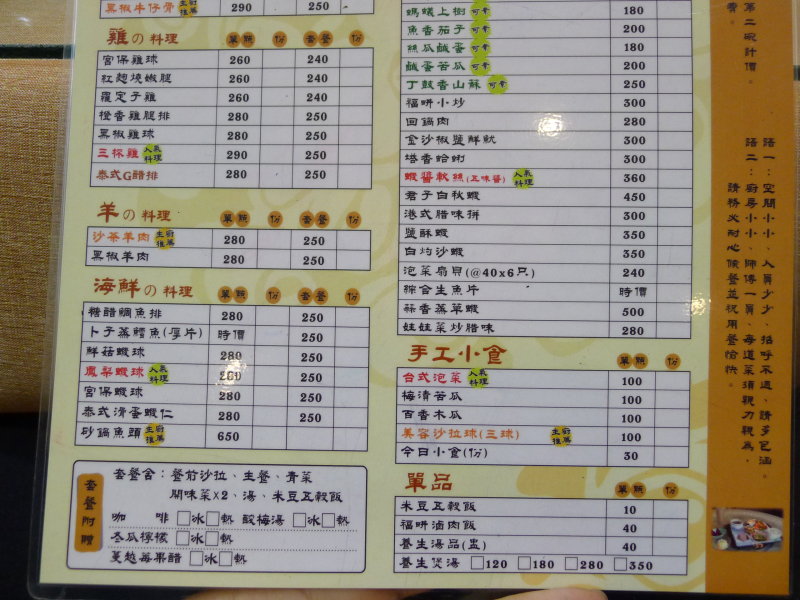 黑椒牛仔骨 主廚推薦 290 250
雞の料理 單點 份 套餐 份
宮保雞球 260 240
紅麴燒嫩腿 260 240
羅定子雞 260 240
橙香雞腿排 280 250
黑椒雞球 280 250
三杯雞 人氣料理 290 250
泰式G腊排 280 250
羊の料理 單點 份 套餐 份
沙茶羊肉 主廚推薦 280 250
黑椒羊肉 280 250
海鮮の料理 單點 份 套餐 份
糖醋鯛魚排 280 250
卜子蒸鱈魚(厚片) 時價 250
鮮菇蝦球 280 250
鳳梨蝦球 人氣料理 280 250
宮保蝦球 280 250
泰式滑蛋蝦仁 280 250
砂鍋魚頭 主廚推薦 650
套餐附贈
套餐含：餐前沙拉、主餐、青菜
開味菜X2、湯、米豆五穀飯
咖啡 □冰□熱 酸梅湯 □冰□熱
冬瓜檸檬 □冰□熱
蔓越莓果醋 □冰□熱
螞蟻上樹 可素 180
魚香茄子 可素 200
絲瓜鹹蛋 可素 180
鹹蛋苦瓜 可素 200
丁鼓香山蘇 可素 250
福畊小炒 300
回鍋肉 280
金沙椒鹽鮮魷 300
塔香蛤蜊 300
蝦醬軟絲(五味醬) 人氣料理 360
君子白秋蝦 450
港式腊味拼 300
鹽酥蝦 350
白灼沙蝦 350
泡菜扇貝(@40x6只) 240
綜合生魚片 時價
蒜香蒸草蝦 500
娃娃菜炒腊味 280
手工小食 單點 份
台式泡菜 人氣料理 100
梅漬苦瓜 100
百香木瓜 100
美容沙拉球(三球) 主廚推薦 100
今日小食(份) 30
單品 單點 份
米豆五穀飯 10
福畊滷肉飯 40
養生湯品(盅) 40
養生煲湯 □120 □180 □280 □350
第二碗計價。
費。
語一：空間小小、人員少少、招呼不週、請多包涵。
語二：廚房小小、師傅一員、每道菜須親力親為，
請務必耐心候餐並祝用餐愉快。